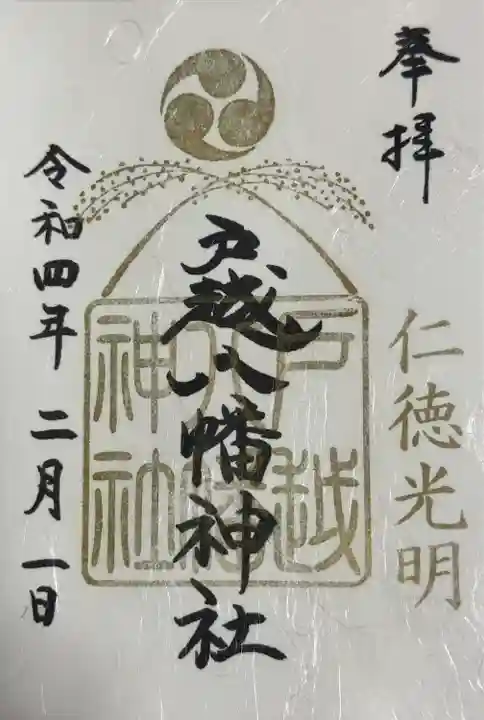 奉拝
仁徳光明
戸越八幡神社
戸越
八幡
神社
令和四年 二月 一日